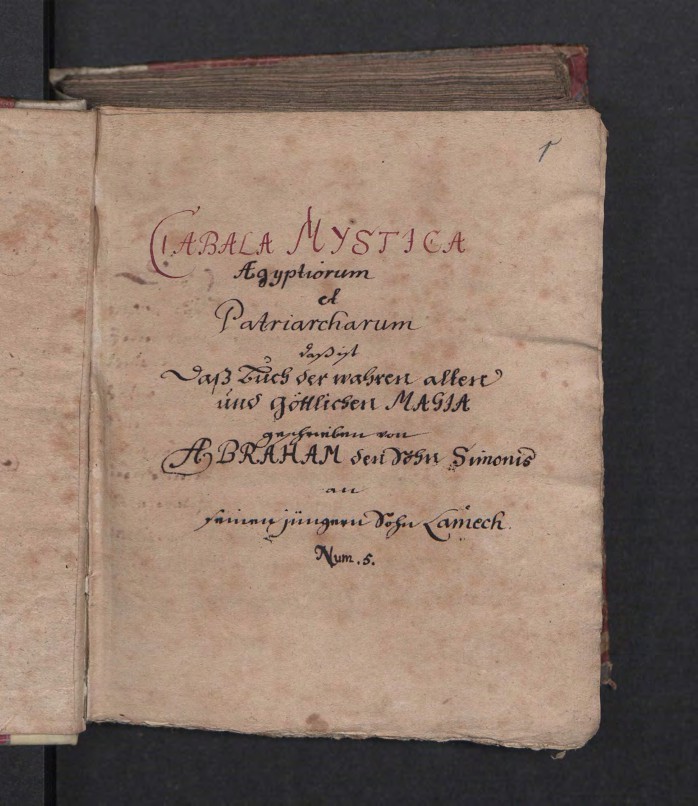 1
CABALA MYSTICA
Ægyptiorum
et
Patriarcharum
daß ist
Daß Buch der wahren alten
und göttlichen MAGIA
geschrieben von
ABRAHAM den Sohn Simonis
an
seinen jüngern Sohn Lamech.
Num. 5.